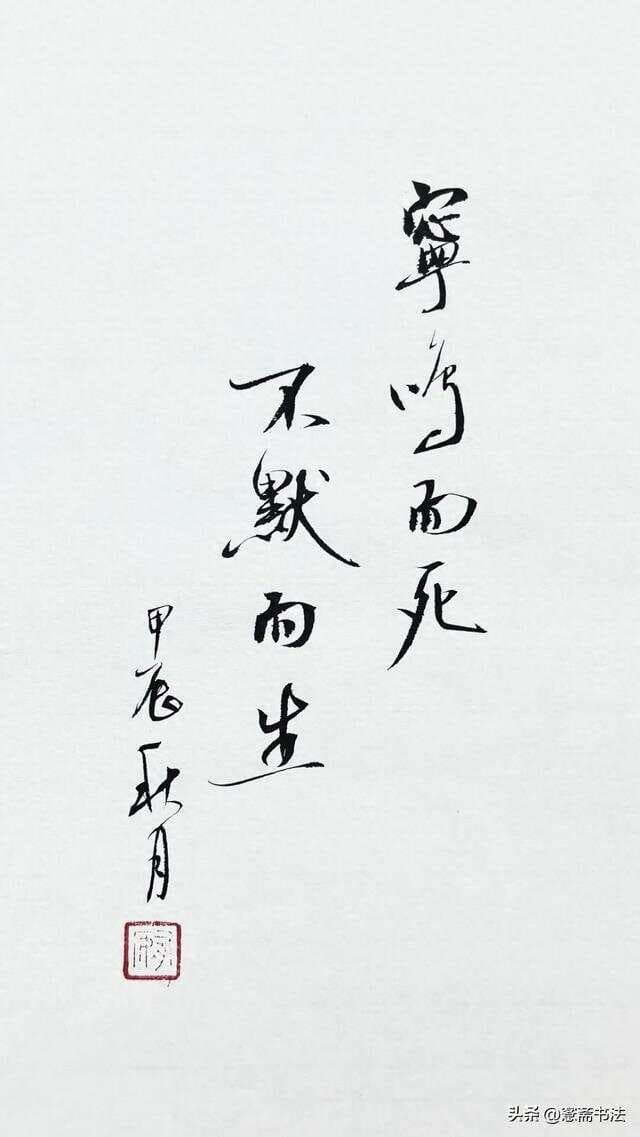 寧鳴而死
不默而生
甲辰秋月
头条 @窓斋书法